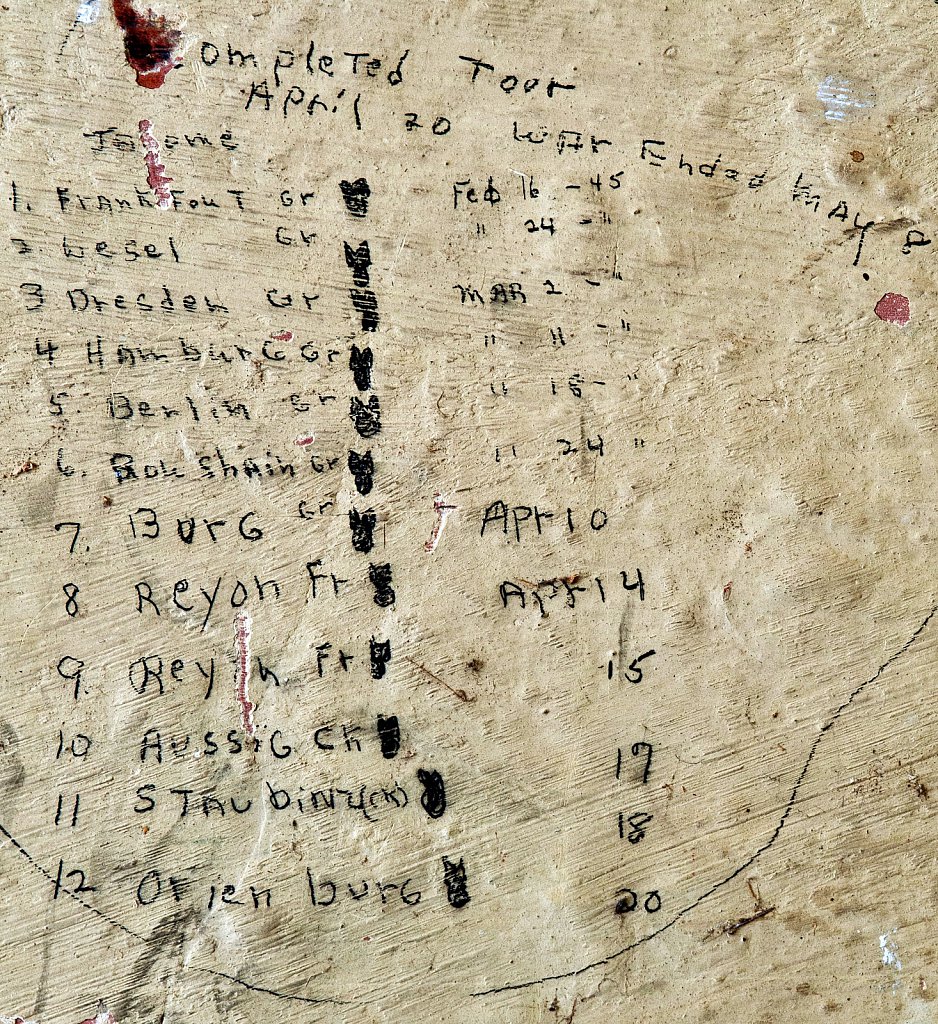 ompleted Toor
April 20 War Ended May 8
1. Frankfourt Gr Feb 16 - 45
2 Wesel Gr " 24 - "
3 Dresden Gr MAR 2 - "
4 Hamburg Gr " 11 - "
5. Berlin Gr " 18 - "
6. Gr " 24 "
7. Burg Gr Apr 10
8 Reyon Fr Apr 14
9. Reyon Fr 15
10 Aussig Ch 17
11 17 18
12 Orienburg 20